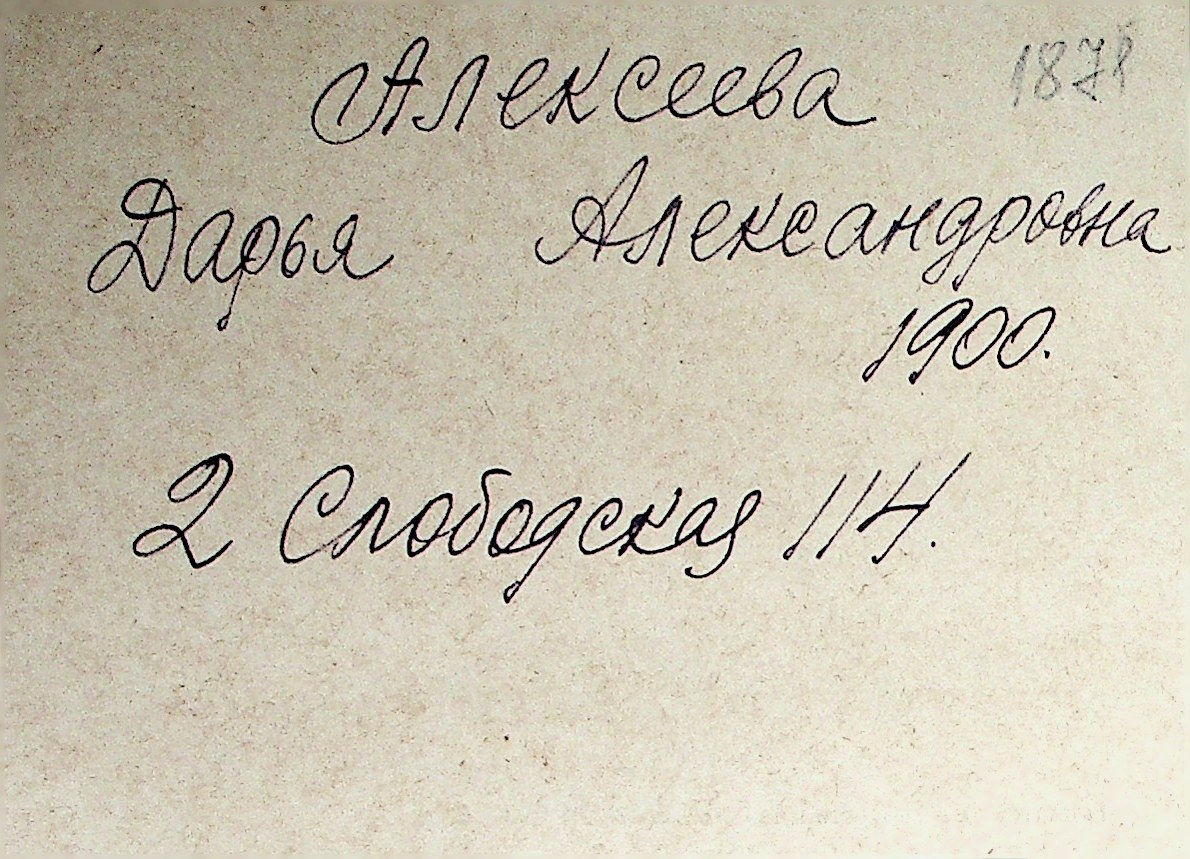 Алексеева
Дарья Александровна
1900.
2 Слободская 114.